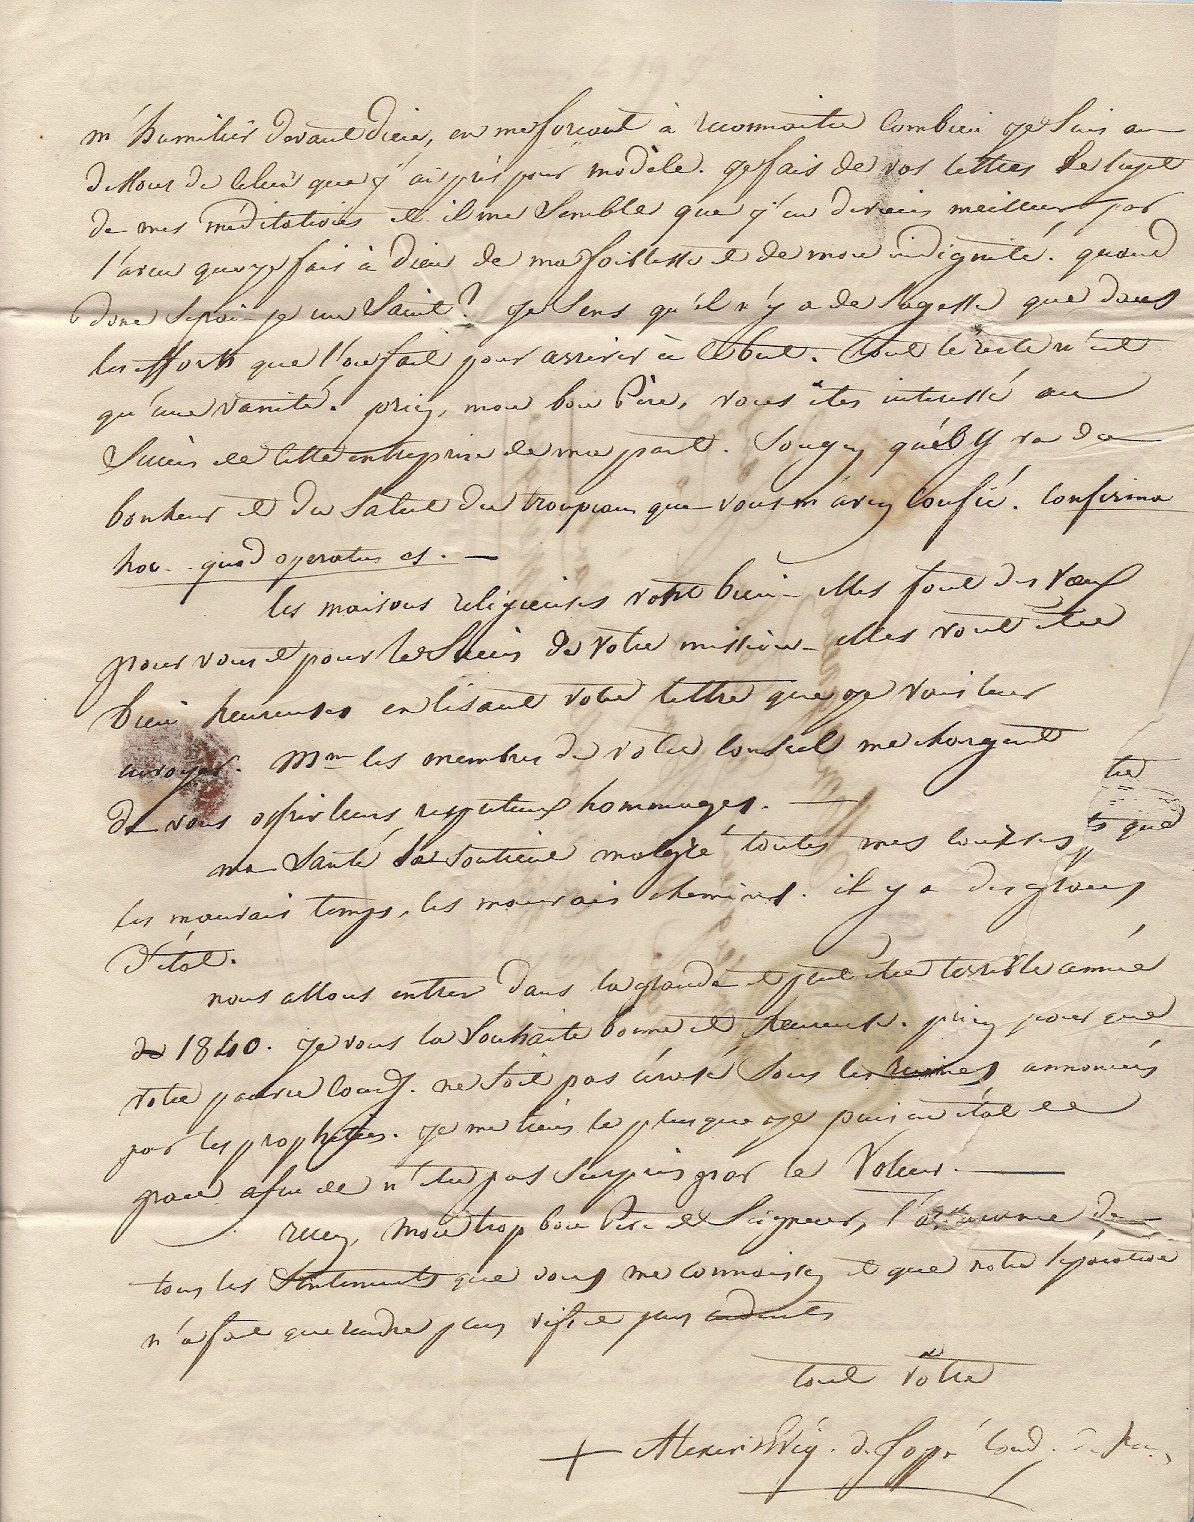 m'humilier devant dieu, en me forcant à reconnaitre combien je suis au
dessous de celui que j'ai pris pour modèle. je fais de vos lettres le sujet
de mes méditations et il me semble que j'en deviens meilleur par
l'aveu que je fais à dieu de ma foiblesse et de mon indignité. quand
donc serai je un Saint? je sens qu'il n'y a de sagesse que dans
les efforts que l'on fait pour arriver à ce but. tout le reste n'est
qu'une vanité. priez, mon bon Père, vous êtes intéressé au
Succès de cette entreprise de ma part. Songez qu'il y va du
bonheur et du Salut du troupeau que vous m'avez confié. Confirma
hoc quod operatus es. —
les maisons religieuses vont bien — elles font des vœux
pour vous et pour le Succès de votre mission — elles vont être
bien heureuses en lisant votre lettre que je vais leur
envoyer. Mrs les membres de votre conseil me chargent
de vous offrir leurs respectueux hommages. —
ma Santé se soutient malgré toutes mes courses
les mauvais temps, les mauvais chemins. il y a des graces
d'état.
nous allons entrer dans la grande et peut être terrible année
de 1840. je vous la souhaite bonne et heureuse. priez pour que
votre pauvre Coadj. ne soit pas écrasé sous les ruines annoncées
par les prophéties. je me tiens le plus que je puis en état de
grace afin de n'etre pas surpris par le Voleur. —
recevez, mon trop bon Père et Seigneur, l'assurance de
tous les sentiments que vous me connoissez et que notre séparation
n'a fait que rendre plus vifs et plus ardents
tout votre
+ Alexis Évêq. de Sappé Coad. de
tre
ts que